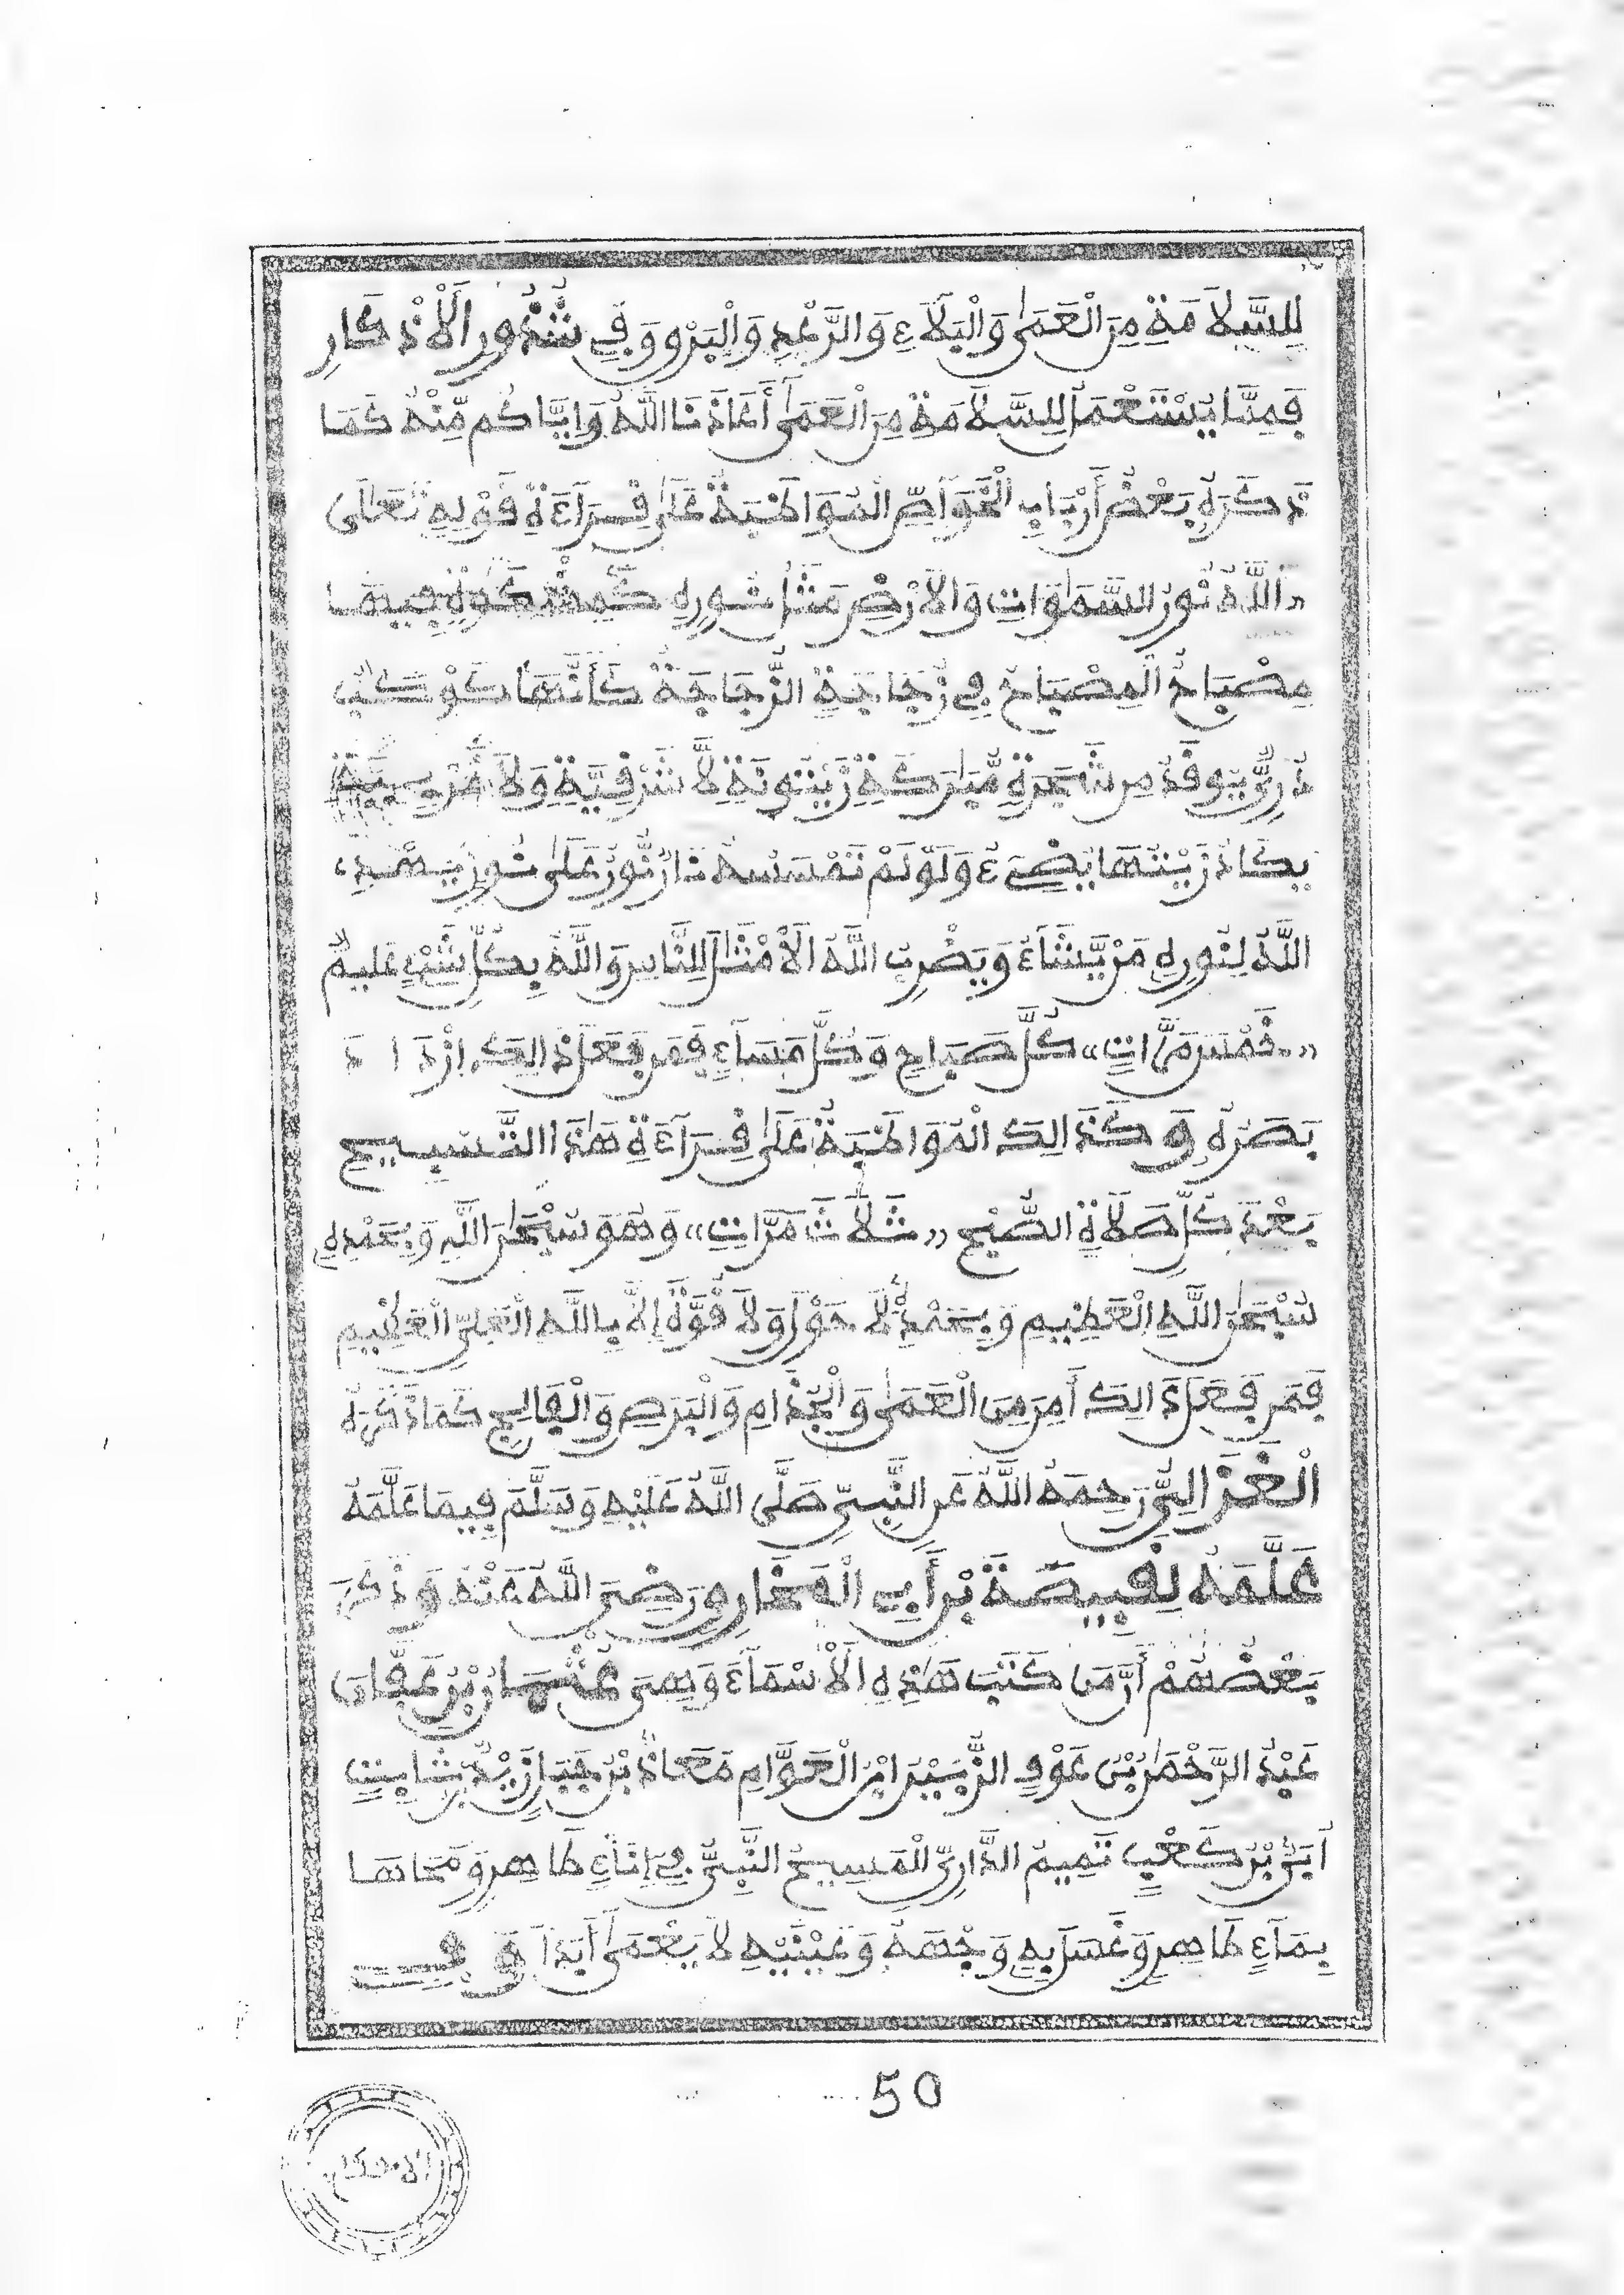 لِلسَّلاَمَةِ مِنَ الْعَمَىٰ وَالْبَلَاءِ وَالرَّعْدِ وَالْبَرْقِ وَفِي شُذُورِ الْأَذْكَارِ
فَمِمَّا يُسْتَعْمَلُ لِلسَّلاَمَةِ مِنَ الْعَمَىٰ أَعَاذَنَا اللَّهُ وَإِيَّاكُم مِّنْهُ كَمَا
ذَكَرَهُ بَعْضُ أَرْبَابِ الْخَوَاصِّ الْمُوَاظَبَةُ عَلَىٰ قِرَاءَةِ قَوْلِهِ تَعَالَى
«اللَّهُ نُورُ السَّمَٰوَاتِ وَالْأَرْضِ مَثَلُ نُورِهِ كَمِشْكَوٰةٍ فِيهَا
مِصْبَاحٌ الْمِصْبَاحُ فِي زُجَاجَةٍ الزُّجَاجَةُ كَأَنَّهَا كَوْكَبٌ
دُرِّيٌّ يُوقَدُ مِن شَجَرَةٍ مُّبَٰرَكَةٍ زَيْتُونَةٍ لَّا شَرْقِيَّةٍ وَلَا غَرْبِيَّةٍ
يَكَادُ زَيْتُهَا يُضِيءُ وَلَوْ لَمْ تَمْسَسْهُ نَارٌ نُّورٌ عَلَىٰ نُورٍ يَهْدِي
اللَّهُ لِنُورِهِ مَنْ يَّشَاءُ وَيَضْرِبُ اللَّهُ الْأَمْثَٰلَ لِلنَّاسِ وَاللَّهُ بِكُلِّ شَيْءٍ عَلِيمٌ
«خَمْسَ مَرَّاتٍ» كُلَّ صَبَاحٍ وَكُلَّ مَسَاءٍ فَمَن فَعَلَ ذَالِكَ ازْدَادَ
بَصَرُهُ وَكَذَالِكَ الْمُوَاظَبَةُ عَلَىٰ قِرَاءَةِ هَٰذَا التَّسْبِيحِ
بَعْدَ كُلِّ صَلَاةِ الصُّبْحِ «ثَلَاثَ مَرَّاتٍ» وَهُوَ سُبْحَٰنَ اللَّهِ وَبِحَمْدِهِ
سُبْحَٰنَ اللَّهِ الْعَظِيمِ وَبِحَمْدِهِ لَا حَوْلَ وَلَا قُوَّةَ إِلَّا بِاللَّهِ الْعَلِيِّ الْعَظِيمِ
فَمَن فَعَلَ ذَالِكَ أَمِنَ مِنَ الْعَمَىٰ وَالْجُذَامِ وَالْبَرَصِ وَالْفَالِجِ كَمَا ذَكَرَهُ
الْغَزَالِيُّ رَحِمَهُ اللَّهُ عَنِ النَّبِيِّ صَلَّى اللَّهُ عَلَيْهِ وَسَلَّمَ فِيمَا عَلَّمَهُ
عَلَّمَهُ لِقَبِيصَةَ بْنِ أَبِي الْمَخَارِقِ رَضِيَ اللَّهُ عَنْهُ وَذَكَرَ
بَعْضُهُمْ أَنَّ مَن كَتَبَ هَٰذِهِ الْأَسْمَاءَ وَهِيَ عُثْمَانُ بْنُ عَفَّانَ
عَبْدُ الرَّحْمَٰنِ بْنُ عَوْفٍ الزُّبَيْرُ ابْنُ الْعَوَّامِ مُعَاذُ بْنُ جَبَلٍ زَيْدُ بْنُ ثَابِتٍ
أُبَيُّ بْنُ كَعْبٍ تَمِيمٌ الدَّارِيُّ الْمَسِيحُ النَّبِيُّ فِي إِنَاءٍ طَاهِرٍ وَمَحَاهَا
بِمَاءٍ طَاهِرٍ وَغَسَلَ بِهِ وَجْهَهُ وَعَيْنَيْهِ لَا يَعْمَىٰ أَبَدًا وَفِي
50